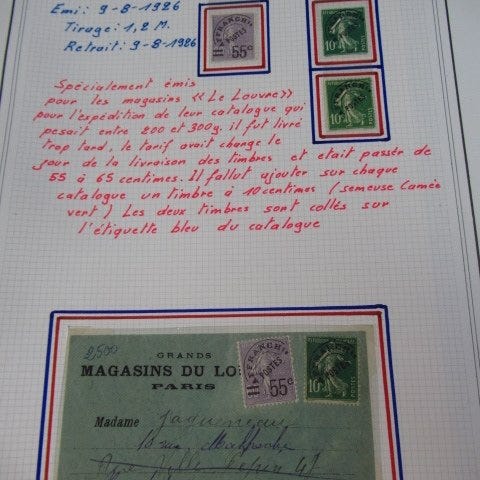 Emi: 9-8-1926
Tirage: 1,2 M.
Retrait: 9-8-1926
AFFRANCHts
POSTES
55c
10c
10c
Spécialement émis
pour les magasins «Le Louvre»
pour l'expédition de leur catalogue qui
pesait entre 200 et 300g. il fut livré
trop tard, le tarif avait changé le
jour de la livraison des timbres et etait passér de
55 à 65 centimes. Il fallut ajouter sur chaque
catalogue un timbre à 10 centimes (semeuse Camée
vert) Les deux timbres sont collés sur
l'étiquette bleu du catalogue
2,500
GRANDS
MAGASINS DU LO
PARIS
AFFRANCHts
POSTES
55c
10c
POSTES
Madame